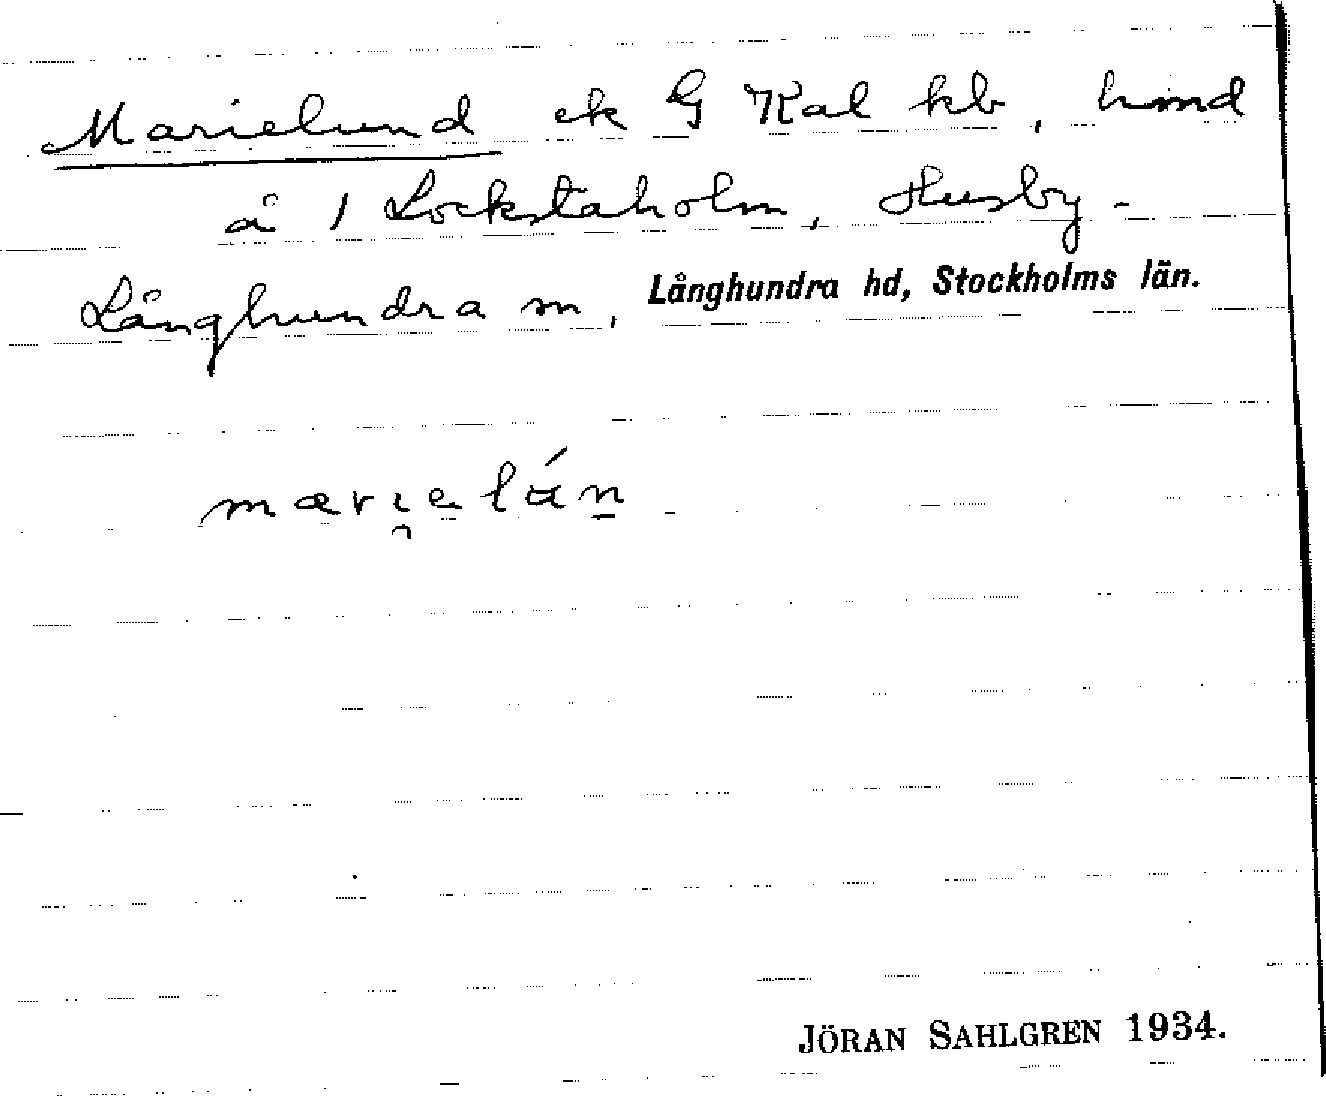 Marielund ek G Kal kb, hmd
å 1 Lockstaholm, Husby-
Långhundra sn, Långhundra hd, Stockholms län.
JÖRAN SAHLGREN 1934.